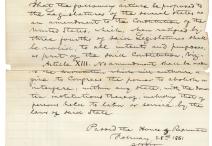 that the following article be proposed to
the Legislatures of the several States as
an amendment to the Constitution of the
United States, which, when ratified by
three fourths of said Legislatures, shall
be valid, to all intents and purposes,
as part of the said Constitution, viz:
Article XIII. No amendment shall be made
to the Constitution which will authorize or
give to Congress the power to abolish or
interfere, within any State, with the domestic
institutions thereof, including that of
persons held to labor or service by the
laws of said State.
Passed the House of Representatives
February 28th 1861